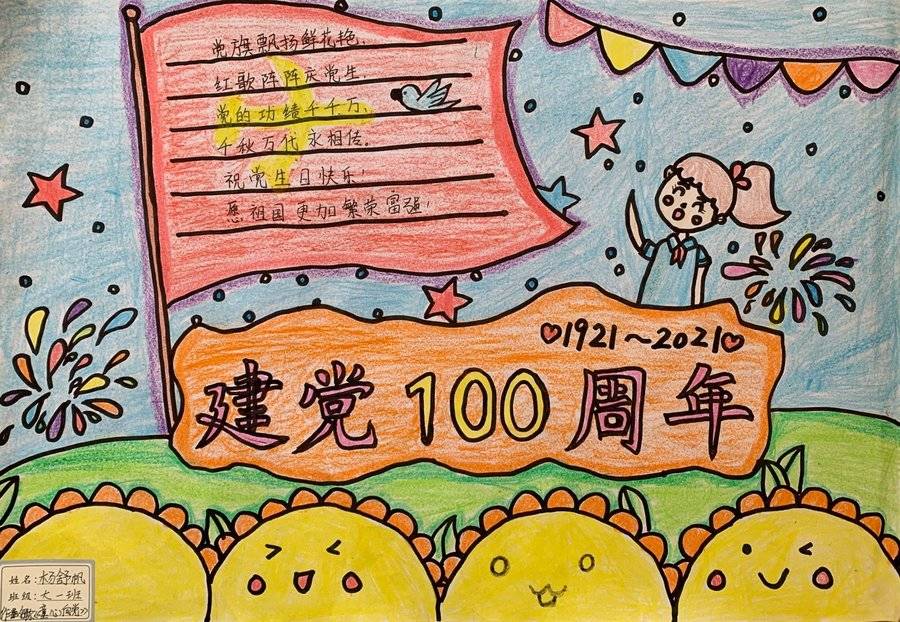 党旗飘扬鲜花艳.
红歌阵阵庆党生.
党的功绩千千万.
千秋万代永相传.
祝党生日快乐!
愿祖国更加繁荣富强!
1921~2021
建党100周年
姓名:杨舒帆
班级:大一班